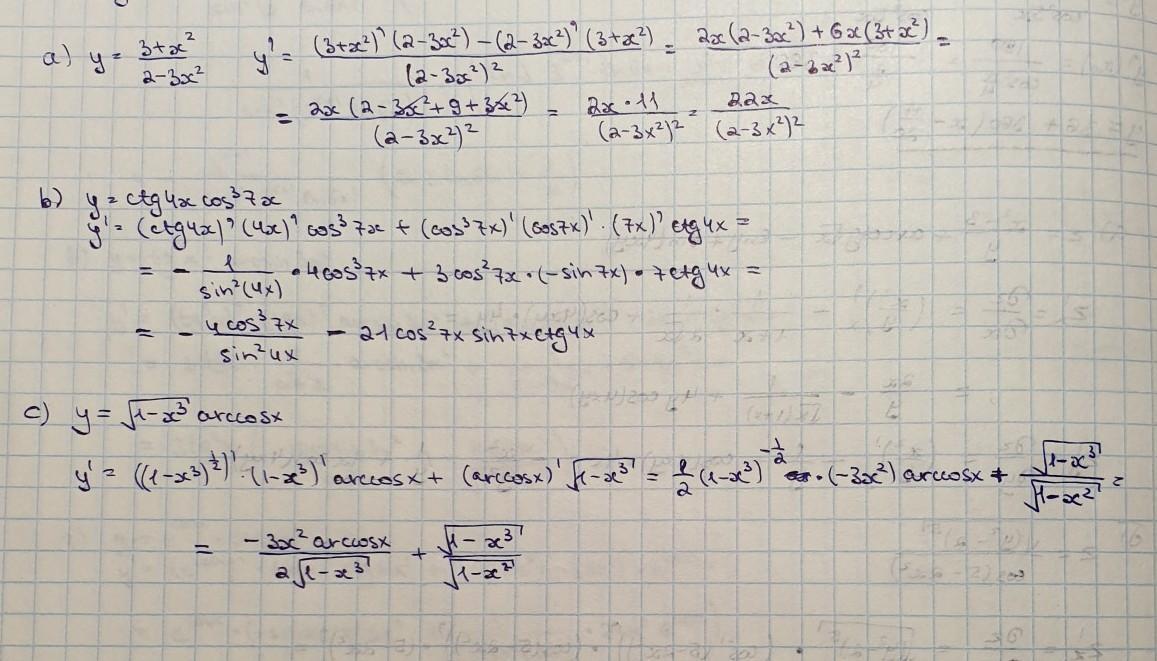 a) y = (3+x²)/(2-3x²)   y' = ((3+x²)' (2-3x²) - (2-3x²)' (3+x²))/(2-3x²)² = (2x(2-3x²) + 6x(3+x²))/(2-3x²)² =
= (2x(2-3x²+9+3x²))/(2-3x²)² = (2x·11)/(2-3x²)² = 22x/(2-3x²)²
b) y = ctg4x cos³7x
y' = (ctg4x)' (4x)' cos³7x + (cos³7x)' (cos7x)' · (7x)' ctg4x =
= - 1/sin²(4x) · 4cos³7x + 3cos²7x · (-sin7x) · 7ctg4x =
= - 4cos³7x/sin²4x - 21cos²7x sin7x ctg4x
c) y = √(1-x³) arccosx
y' = ((1-x³)^½)' · (1-x³)' arccosx + (arccosx)' √(1-x³) = 1/2 (1-x³)^-½ · (-3x²) arccosx + √(1-x³)/√(1-x²) =
= (-3x² arccosx)/(2√(1-x³)) + √(1-x³)/√(1-x²)